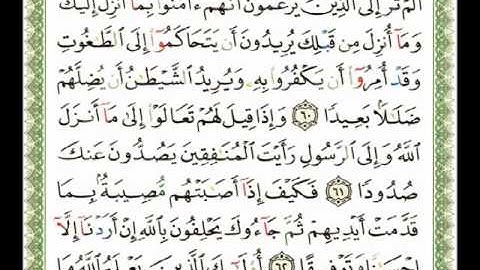 أَلَمْ تَرَ إِلَى ٱلَّذِينَ يَزْعُمُونَ أَنَّهُمْ ءَامَنُوا۟ بِمَآ أُنزِلَ إِلَيْكَ
وَمَآ أُنزِلَ مِن قَبْلِكَ يُرِيدُونَ أَن يَتَحَاكَمُوٓا۟ إِلَى ٱلطَّٰغُوتِ
وَقَدْ أُمِرُوٓا۟ أَن يَكْفُرُوا۟ بِهِۦ وَيُرِيدُ ٱلشَّيْطَٰنُ أَن يُضِلَّهُمْ
ضَلَٰلًۢا بَعِيدًا ٦٠ وَإِذَا قِيلَ لَهُمْ تَعَالَوْا۟ إِلَىٰ مَآ أَنزَلَ
ٱللَّهُ وَإِلَى ٱلرَّسُولِ رَأَيْتَ ٱلْمُنَٰفِقِينَ يَصُدُّونَ عَنكَ
صُدُودًا ٦١ فَكَيْفَ إِذَآ أَصَٰبَتْهُم مُّصِيبَةٌۢ بِمَا
قَدَّمَتْ أَيْدِيهِمْ ثُمَّ جَآءُوكَ يَحْلِفُونَ بِٱللَّهِ إِنْ أَرَدْنَآ إِلَّآ
إِحْسَٰنًا وَتَوْفِيقًا ٦٢ أُو۟لَٰٓئِكَ ٱلَّذِينَ يَعْلَمُ ٱللَّهُ مَا